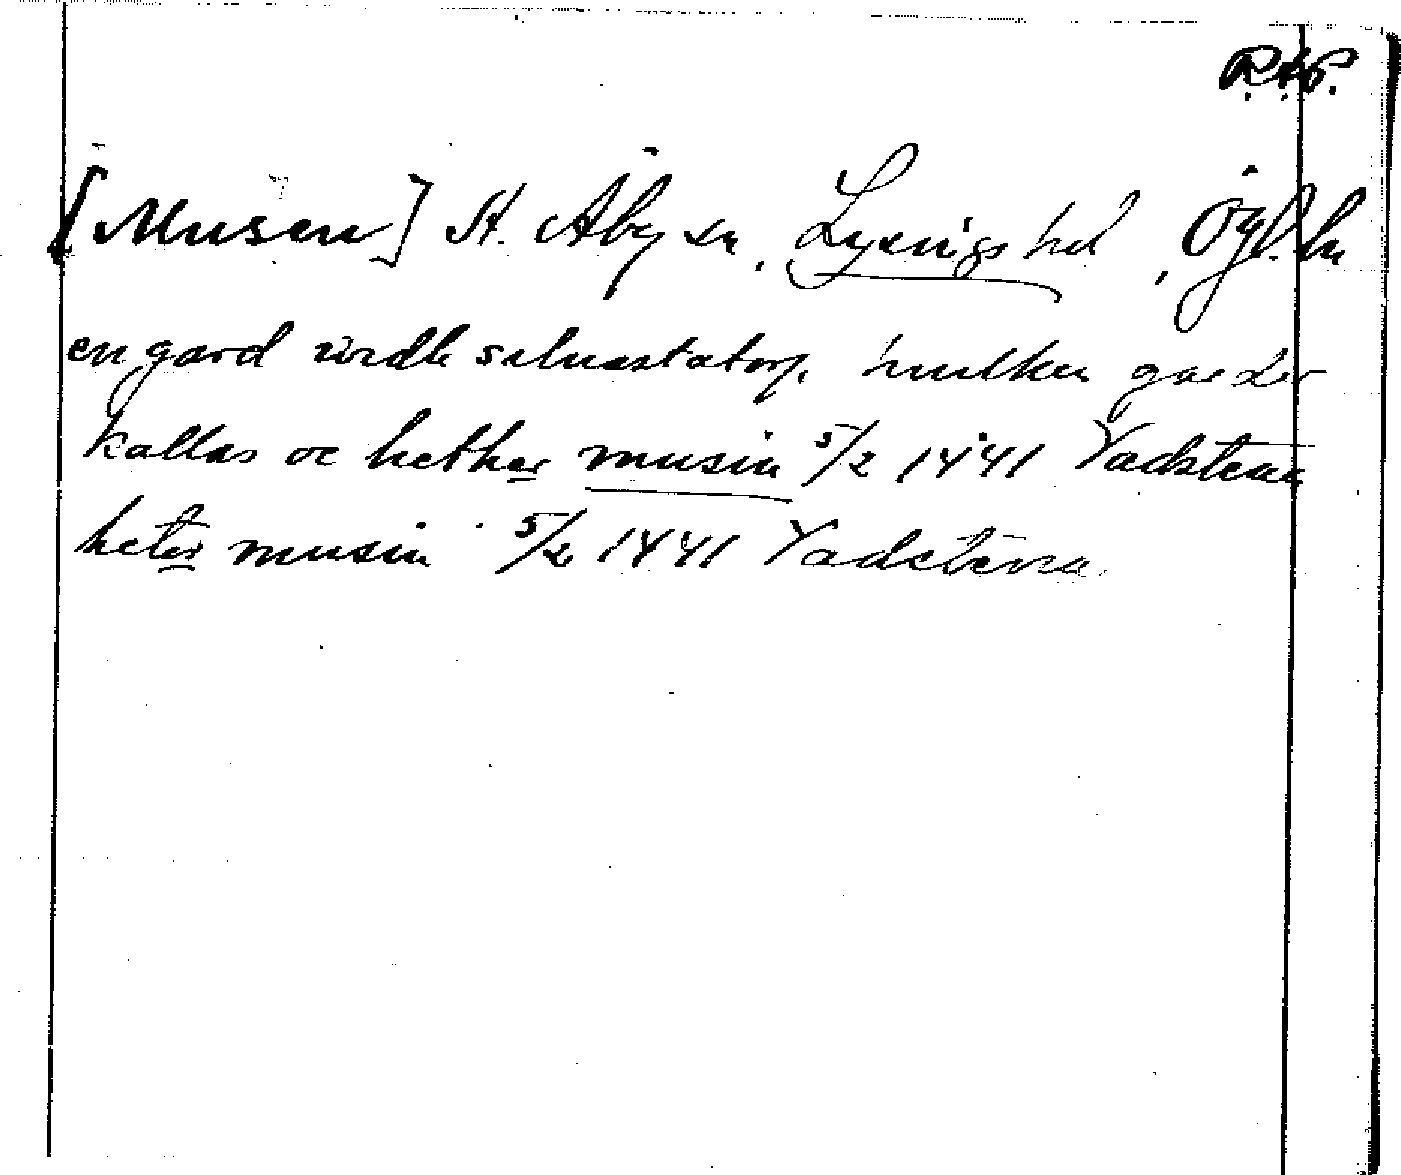 R.A.P.
[Musen] St. Åby sn, Lysings hd, Ögl. ln
en gard vidh silnastatorp hwilken garder
kallas oc hether musin 5/2 1441 Vadstena
heter musin 5/2 1441 Vadstena